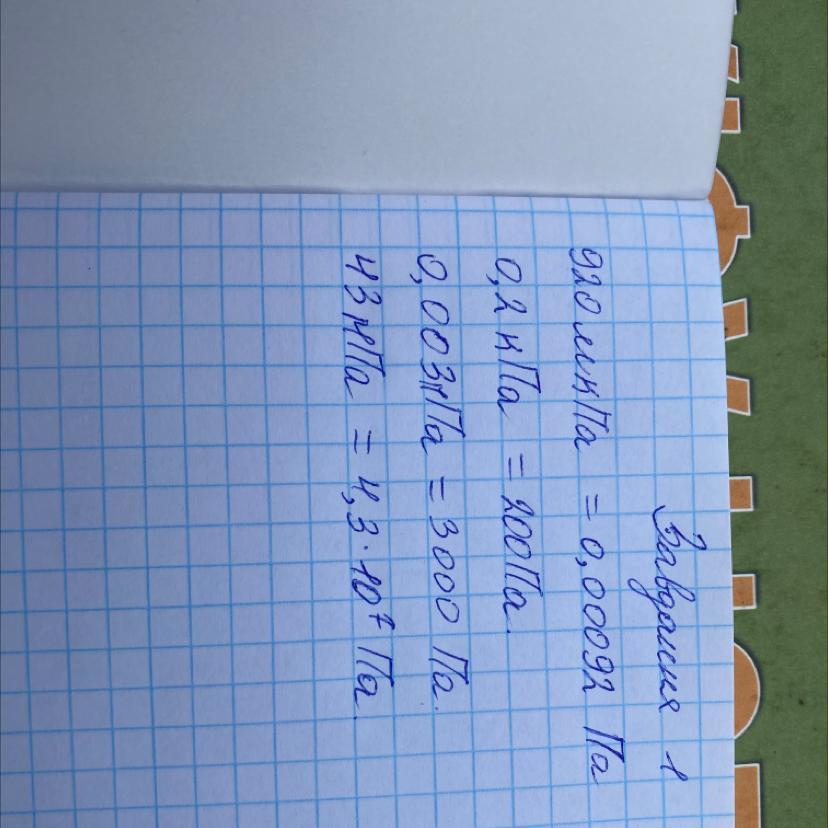 Завдання 1
920 мкПа = 0,00092 Па
0,2 кПа = 200Па.
0,003мПа = 3000 Па.
43мПа = 4,3·10⁷ Па.